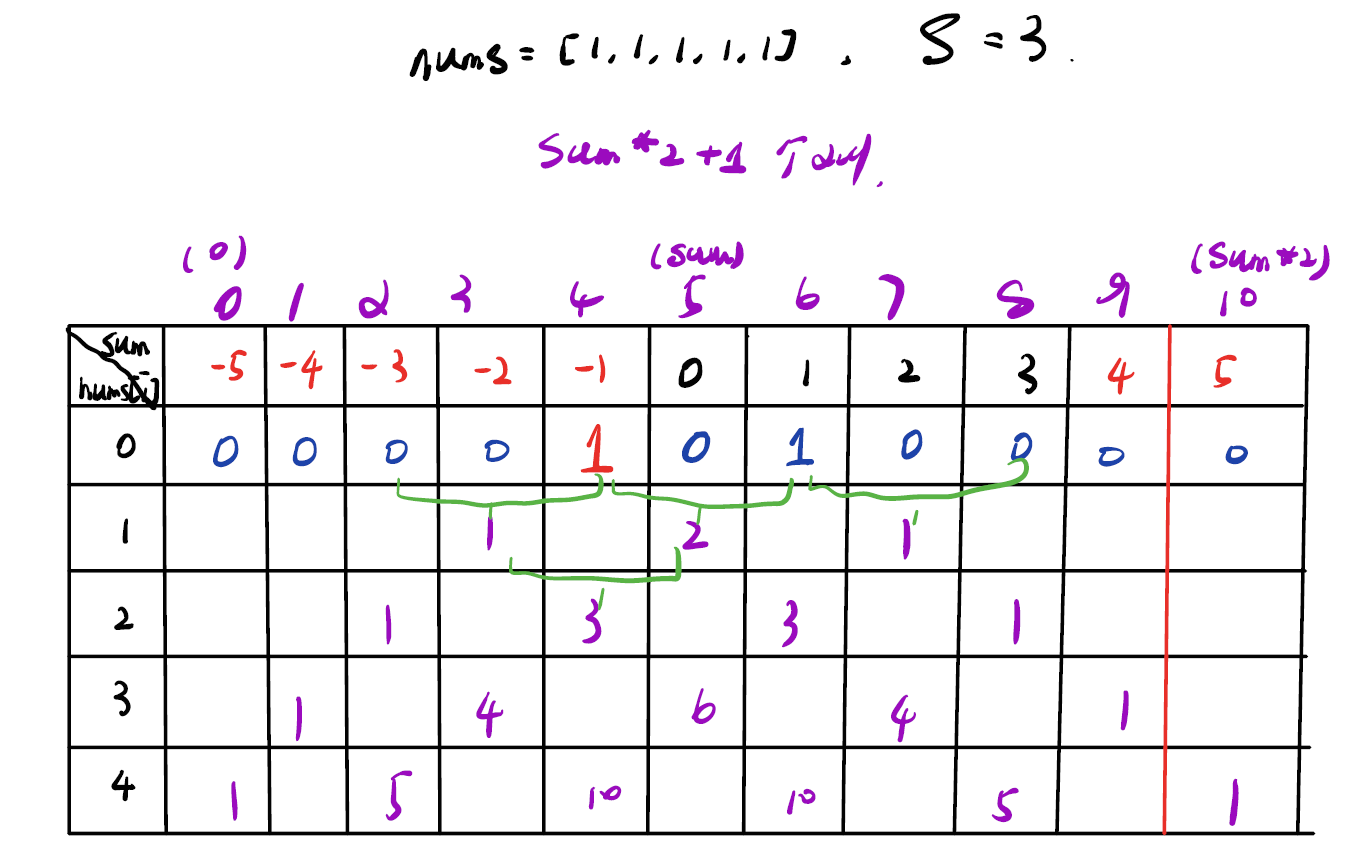 nums = [1, 1, 1, 1, 1] , S = 3 .
Sum*2+1
(0) (sum) (sum*2)
0 1 2 3 4 5 6 7 8 9 10
sum
nums[i] -5 -4 -3 -2 -1 0 1 2 3 4 5
0 0 0 0 0 1 0 1 0 0 0 0
1 1 2 1
2 1 3 3 1
3 1 4 6 4 1
4 1 5 10 10 5 1